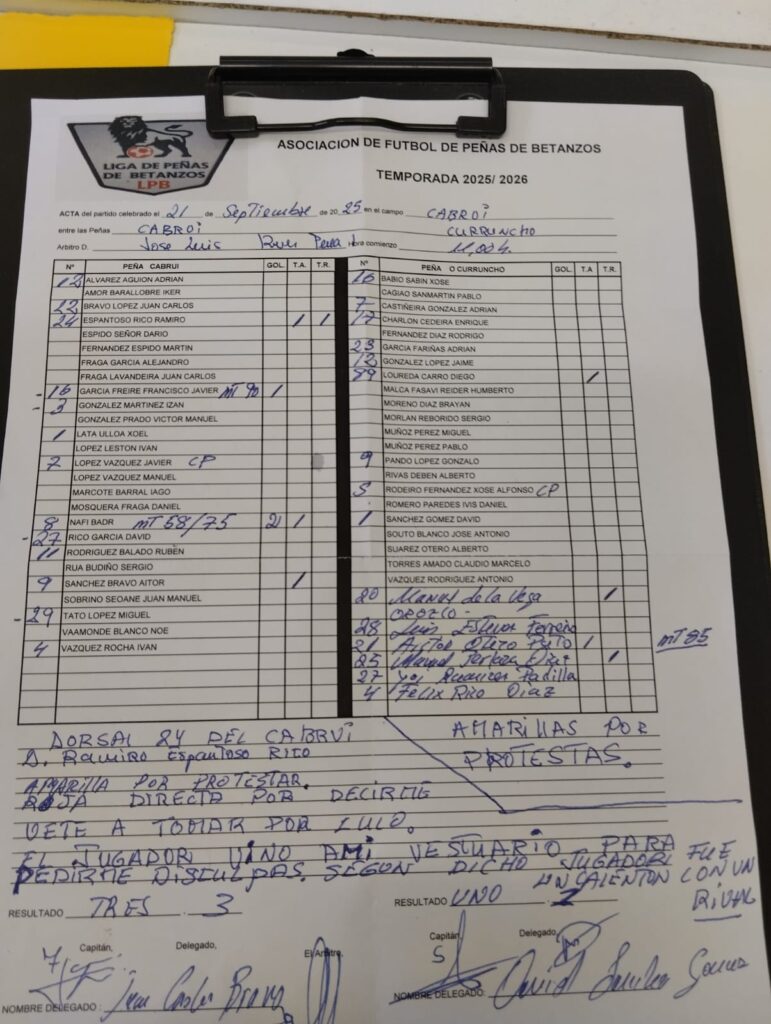 LIGA DE PEÑAS
DE BETANZOS
LPB
ASOCIACION DE FUTBOL DE PEÑAS DE BETANZOS
TEMPORADA 2025/ 2026
ACTA del partido celebrado el 21 de Septiembre de 20 25 en el campo CABROI
entre las Peñas CABROI CURRUNCHO
Arbitro D. Jose Luis Pena Hora comienzo 11,00 h.
Nº PEÑA CABRUI GOL. T.A. T.R.
13 ALVAREZ AGUION ADRIAN
AMOR BARALLOBRE IKER
22 BRAVO LOPEZ JUAN CARLOS
24 ESPANTOSO RICO RAMIRO / /
ESPIDO SEÑOR DARIO
FERNANDEZ ESPIDO MARTIN
FRAGA GARCIA ALEJANDRO
FRAGA LAVANDEIRA JUAN CARLOS
- 16 GARCIA FREIRE FRANCISCO JAVIER MT 90 1
- 3 GONZALEZ MARTINEZ IZAN
GONZALEZ PRADO VICTOR MANUEL
1 LATA ULLOA XOEL
LOPEZ LESTON IVAN
7 LOPEZ VAZQUEZ JAVIER CP
LOPEZ VAZQUEZ MANUEL
MARCOTE BARRAL IAGO
MOSQUERA FRAGA DANIEL
8 NAFI BADR MT 58/75 2 /
- 27 RICO GARCIA DAVID
11 RODRIGUEZ BALADO RUBÉN
RUA BUDIÑO SERGIO
9 SANCHEZ BRAVO AITOR /
SOBRINO SEOANE JUAN MANUEL
- 29 TATO LOPEZ MIGUEL
VAAMONDE BLANCO NOE
4 VAZQUEZ ROCHA IVAN
Nº PEÑA O CURRUNCHO GOL. T.A T.R.
16 BABIO SABIN XOSE
CAGIAO SANMARTIN PABLO
7 CASTIÑEIRA GONZALEZ ADRIAN
17 CHARLON CEDEIRA ENRIQUE
FERNANDEZ DIAZ RODRIGO
23 GARCIA FARIÑAS ADRIAN
12 GONZALEZ LOPEZ JAIME
89 LOUREDA CARRO DIEGO /
MALCA FASAVI REIDER HUMBERTO
MORENO DIAZ BRAYAN
MORLAN REBORIDO SERGIO
MUÑOZ PEREZ MIGUEL
MUÑOZ PEREZ PABLO
9 PANDO LOPEZ GONZALO
RIVAS DEBEN ALBERTO
5 RODEIRO FERNANDEZ XOSE ALFONSO CP
ROMERO PAREDES IVIS DANIEL
1 SANCHEZ GOMEZ DAVID
SOUTO BLANCO JOSE ANTONIO
SUAREZ OTERO ALBERTO
TORRES AMADO CLAUDIO MARCELO
VAZQUEZ RODRIGUEZ ANTONIO
20 Manuel de la Vega /
OROZCO -
28 Luis Esteva Ferreño
21 Aistor Otero Puto 1 MT 85
25 Manuel Diaz /
27 Padilla
4 Felix Rico Diaz
DORSAL 24 DEL CABRUI
D. Ramiro Espantoso Rico
AMARILLA POR PROTESTAR.
ROJA DIRECTA POR DECIRME
VETE A TOMAR POR CULO.
EL JUGADOR VINO AMI VESTUARIO PARA
PEDIRME DISCULPAS. SEGUN DICHO JUGADOR FUE
UN CALENTON CON UN
RIVAL
AMARILLAS POR
PROTESTAS.
RESULTADO TRES 3
RESULTADO UNO 1
Capitán, Delegado, El Arbitro,
7
NOMBRE DELEGADO : Juan Carlos Bravo
Capitán Delegado,
5
NOMBRE DELEGADO: David Sanchez Gomez